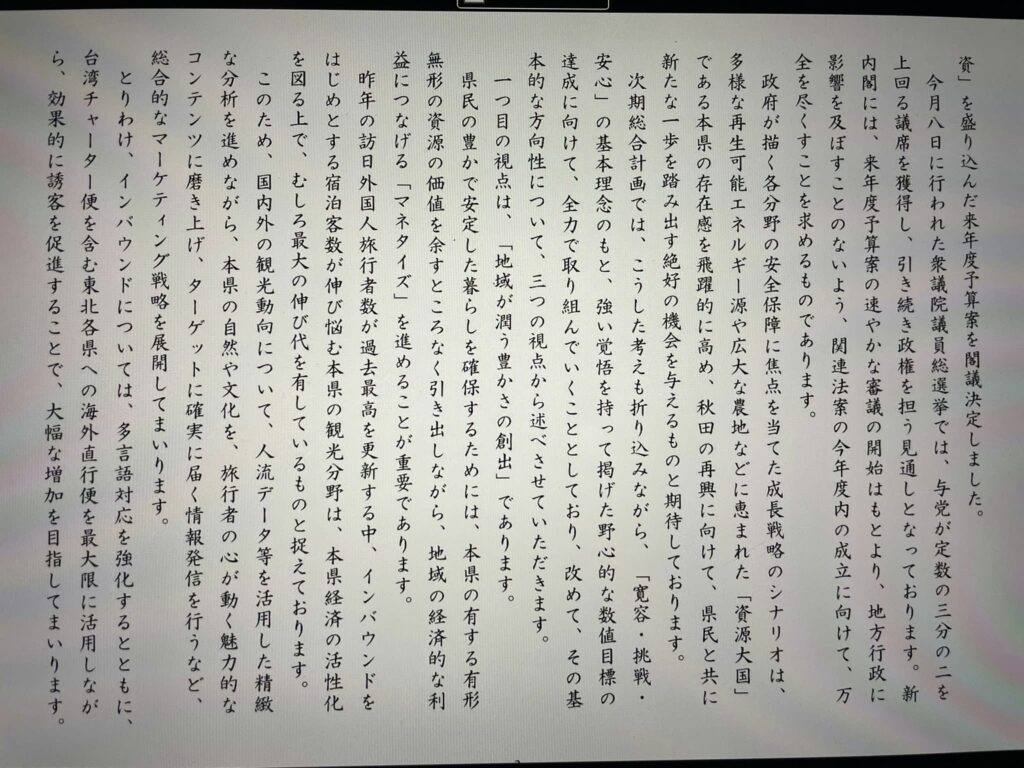 資」を盛り込んだ来年度予算案を閣議決定しました。
今月八日に行われた衆議院議員総選挙では、与党が定数の三分の二を
上回る議席を獲得し、引き続き政権を担う見通しとなっております。新
内閣には、来年度予算案の速やかな審議の開始はもとより、地方行政に
影響を及ぼすことのないよう、関連法案の今年度内の成立に向けて、万
全を尽くすことを求めるものであります。
政府が描く各分野の安全保障に焦点を当てた成長戦略のシナリオは、
多様な再生可能エネルギー源や広大な農地などに恵まれた「資源大国」
である本県の存在感を飛躍的に高め、秋田の再興に向けて、県民と共に
新たな一歩を踏み出す絶好の機会を与えるものと期待しております。
次期総合計画では、こうした考えも折り込みながら、「寛容・挑戦・
安心」の基本理念のもと、強い覚悟を持って掲げた野心的な数値目標の
達成に向けて、全力で取り組んでいくこととしており、改めて、その基
本的な方向性について、三つの視点から述べさせていただきます。
一つ目の視点は、「地域が潤う豊かさの創出」であります。
県民の豊かで安定した暮らしを確保するためには、本県の有する有形
無形の資源の価値を余すところなく引き出しながら、地域の経済的な利
益につなげる「マネタイズ」を進めることが重要であります。
昨年の訪日外国人旅行者数が過去最高を更新する中、インバウンドを
はじめとする宿泊客数が伸び悩む本県の観光分野は、本県経済の活性化
を図る上で、むしろ最大の伸び代を有しているものと捉えております。
このため、国内外の観光動向について、人流データ等を活用した精緻
な分析を進めながら、本県の自然や文化を、旅行者の心が動く魅力的な
コンテンツに磨き上げ、ターゲットに確実に届く情報発信を行うなど、
総合的なマーケティング戦略を展開してまいります。
とりわけ、インバウンドについては、多言語対応を強化するとともに、
台湾チャーター便を含む東北各県への海外直行便を最大限に活用しなが
ら、効果的に誘客を促進することで、大幅な増加を目指してまいります。